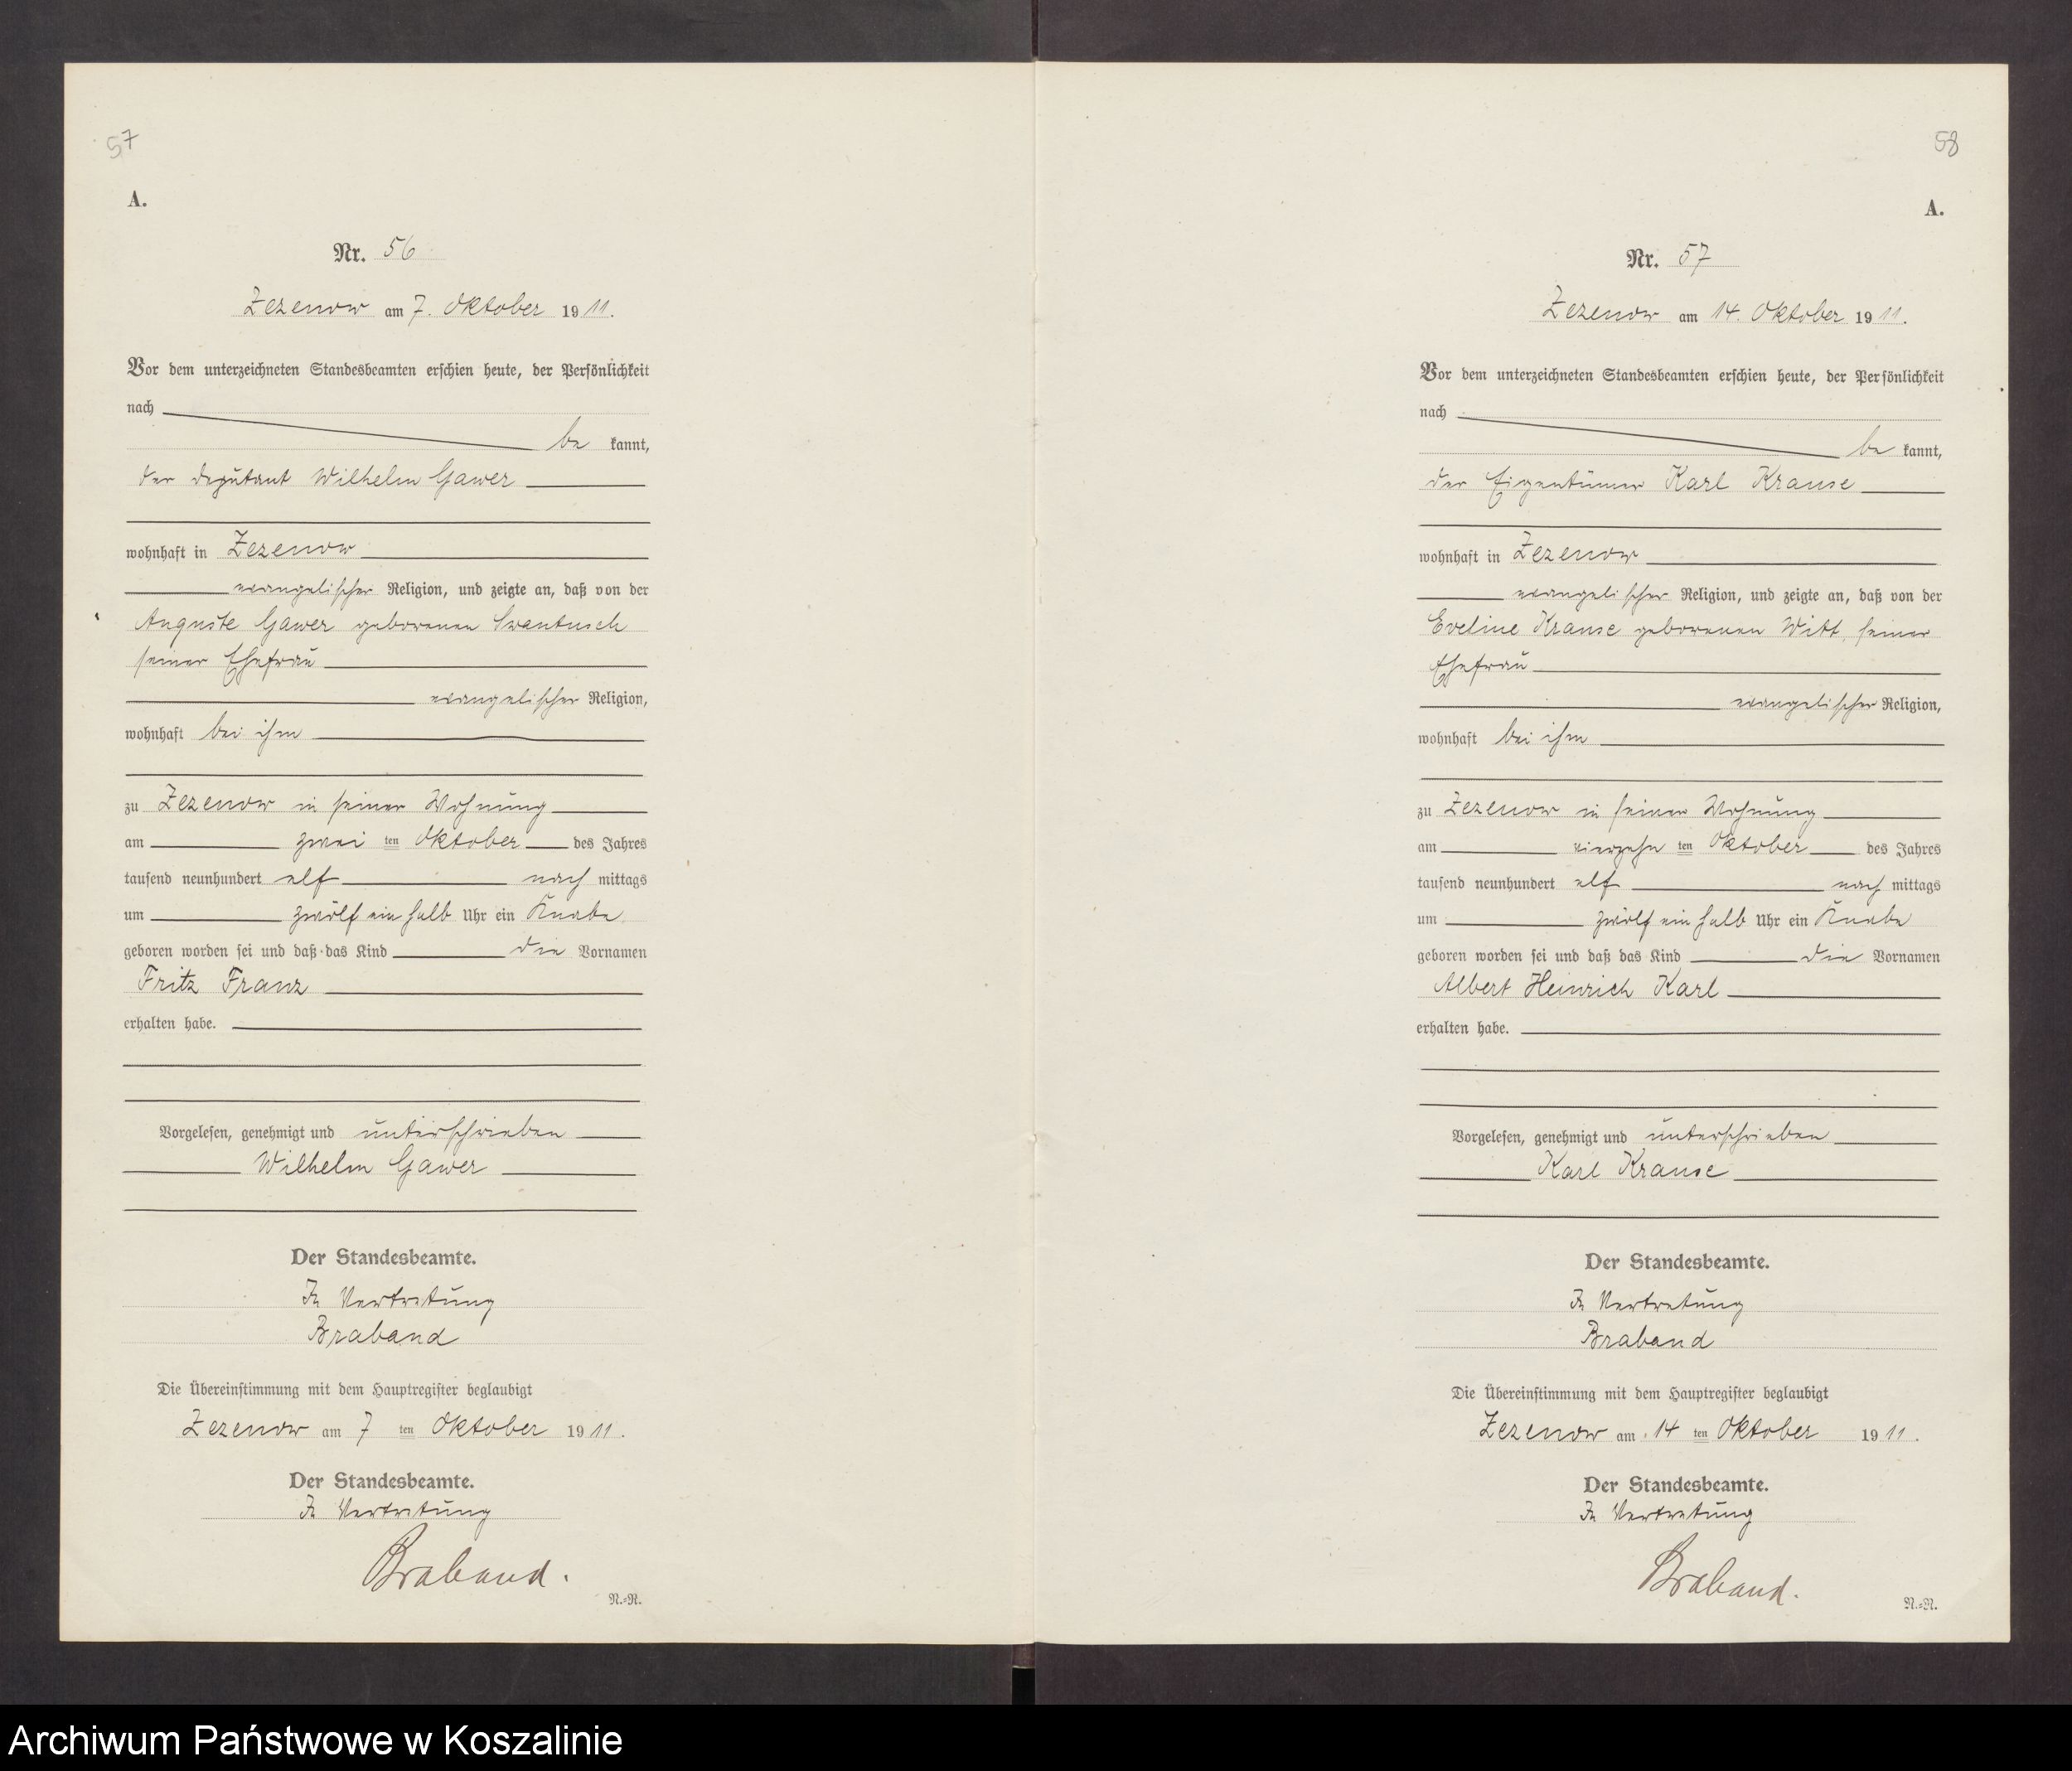 57
A.
Nr. 56
Zezenow am 7. Oktober 1911.
Vor dem unterzeichneten Standesbeamten erschien heute, der Persönlichkeit
nach
be kannt,
der Deputant Wilhelm Gawer
wohnhaft in Zezenow
evangelischer Religion, und zeigte an, daß von der
Auguste Gawer geborenen Swantusch
seiner Ehefrau
evangelischer Religion,
wohnhaft bei ihm
zu Zezenow in seiner Wohnung
am zwei ten Oktober des Jahres
tausend neunhundert elf nach mittags
um zwölf ein halb Uhr ein Knabe
geboren worden sei und daß das Kind die Vornamen
Fritz Franz
erhalten habe.
Vorgelesen, genehmigt und unterschrieben
Wilhelm Gawer
Der Standesbeamte.
In Vertretung
Braband
Die Übereinstimmung mit dem Hauptregister beglaubigt
Zezenow am 7 ten Oktober 1911.
Der Standesbeamte.
In Vertretung
Braband.
N.=R.
58
A.
Nr. 57
Zezenow am 14. Oktober 1911.
Vor dem unterzeichneten Standesbeamten erschien heute, der Persönlichkeit
nach
be kannt,
der Eigentümer Karl Krause
wohnhaft in Zezenow
evangelischer Religion, und zeigte an, daß von der
Eveline Krause geborenen Witt, seiner
Ehefrau
evangelischer Religion,
wohnhaft bei ihm
zu Zezenow in seiner Wohnung
am vierzehn ten Oktober des Jahres
tausend neunhundert elf nach mittags
um zwölf ein halb Uhr ein Knabe
geboren worden sei und daß das Kind die Vornamen
Albert Heinrich Karl
erhalten habe.
Vorgelesen, genehmigt und unterschrieben
Karl Krause
Der Standesbeamte.
In Vertretung
Braband
Die Übereinstimmung mit dem Hauptregister beglaubigt
Zezenow am 14 ten Oktober 1911.
Der Standesbeamte.
In Vertretung
Braband.
N.=R.
Archiwum Państwowe w Koszalinie